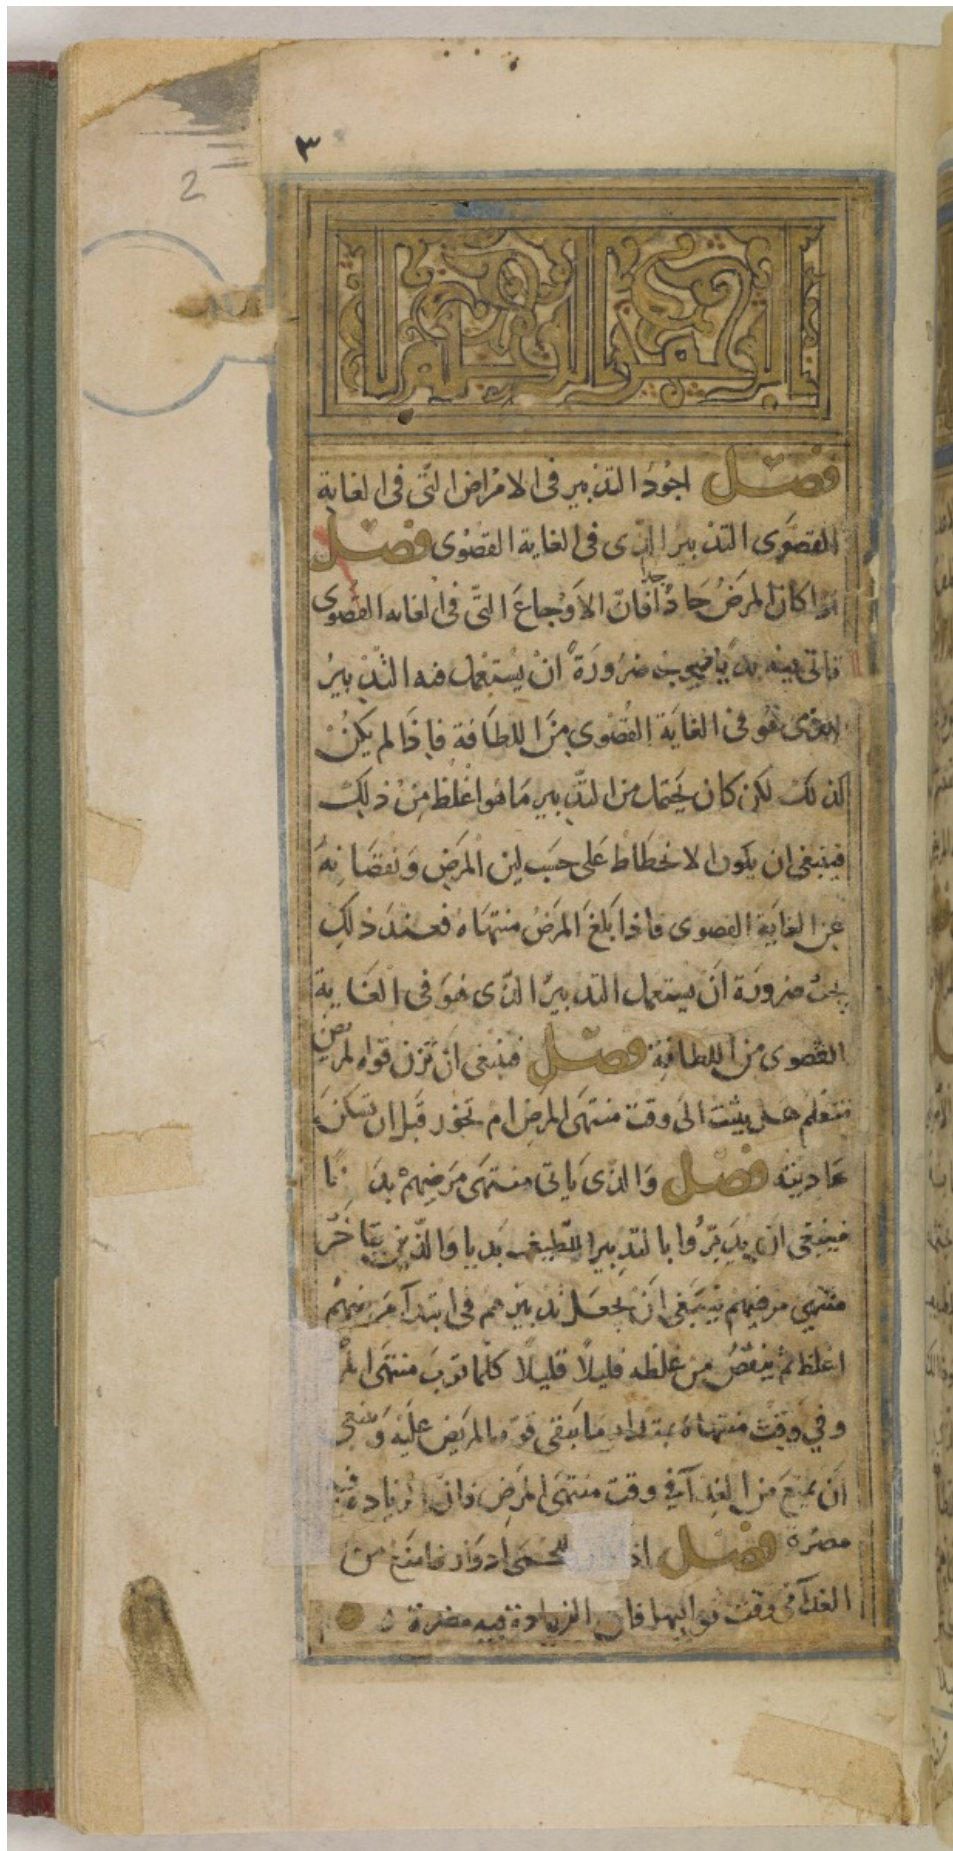 ٣
2
فصل اجود التدبير في الامراض التي في الغاية
القصوى التدبير الذي في الغاية القصوى فصل
اذا كان المرض حادًا جدا فان الاوجاع التي في الغايه القصوى
تاتي فيه بديا فيجب ضرورةً ان يستعمل فيه التدبير
الذي هو في الغاية القصوى من اللطافة فاذا لم يكن
كذلك لكن كان يحتمل من التدبير ما هوا غلظ من ذلك
فينبغي ان يكون الانحطاط على حسب لين المرض ونقصانه
عن الغاية القصوى فاذا بلغ المرض منتهاه فعند ذلك
يجب ضرورة ان يستعمل التدبير الذي هو في الغاية
القصوى من اللطافة فصل فينبغي ان تزن قوة المريض
فتعلم هل يثبت الى وقت منتهى المرض ام تخور قبل ان تسكن
عاديته فصل والذي ياتي منتهى مرضهم بديا
فينبغي ان يدبروا بالتدبير اللطيف بديا والذين يتاخر
منتهي مرضهم ينبغي ان يجعل تدبيرهم في ابتدآ مرضهم
اغلظ ثم ينقص من غلظه قليلًا قليلًا كلما قرب منتهى
وفي وقت منتهاه بمقدار ما تبقى قوة المريض عليه وينبغي
ان يمنع من الغدآ في وقت منتهى المرض فان الزيادة فيه
مضرة فصل اذا للحمى ادوار فامنع من
الغدآ في وقت نوايبها فان الزيادة فيه مضرة